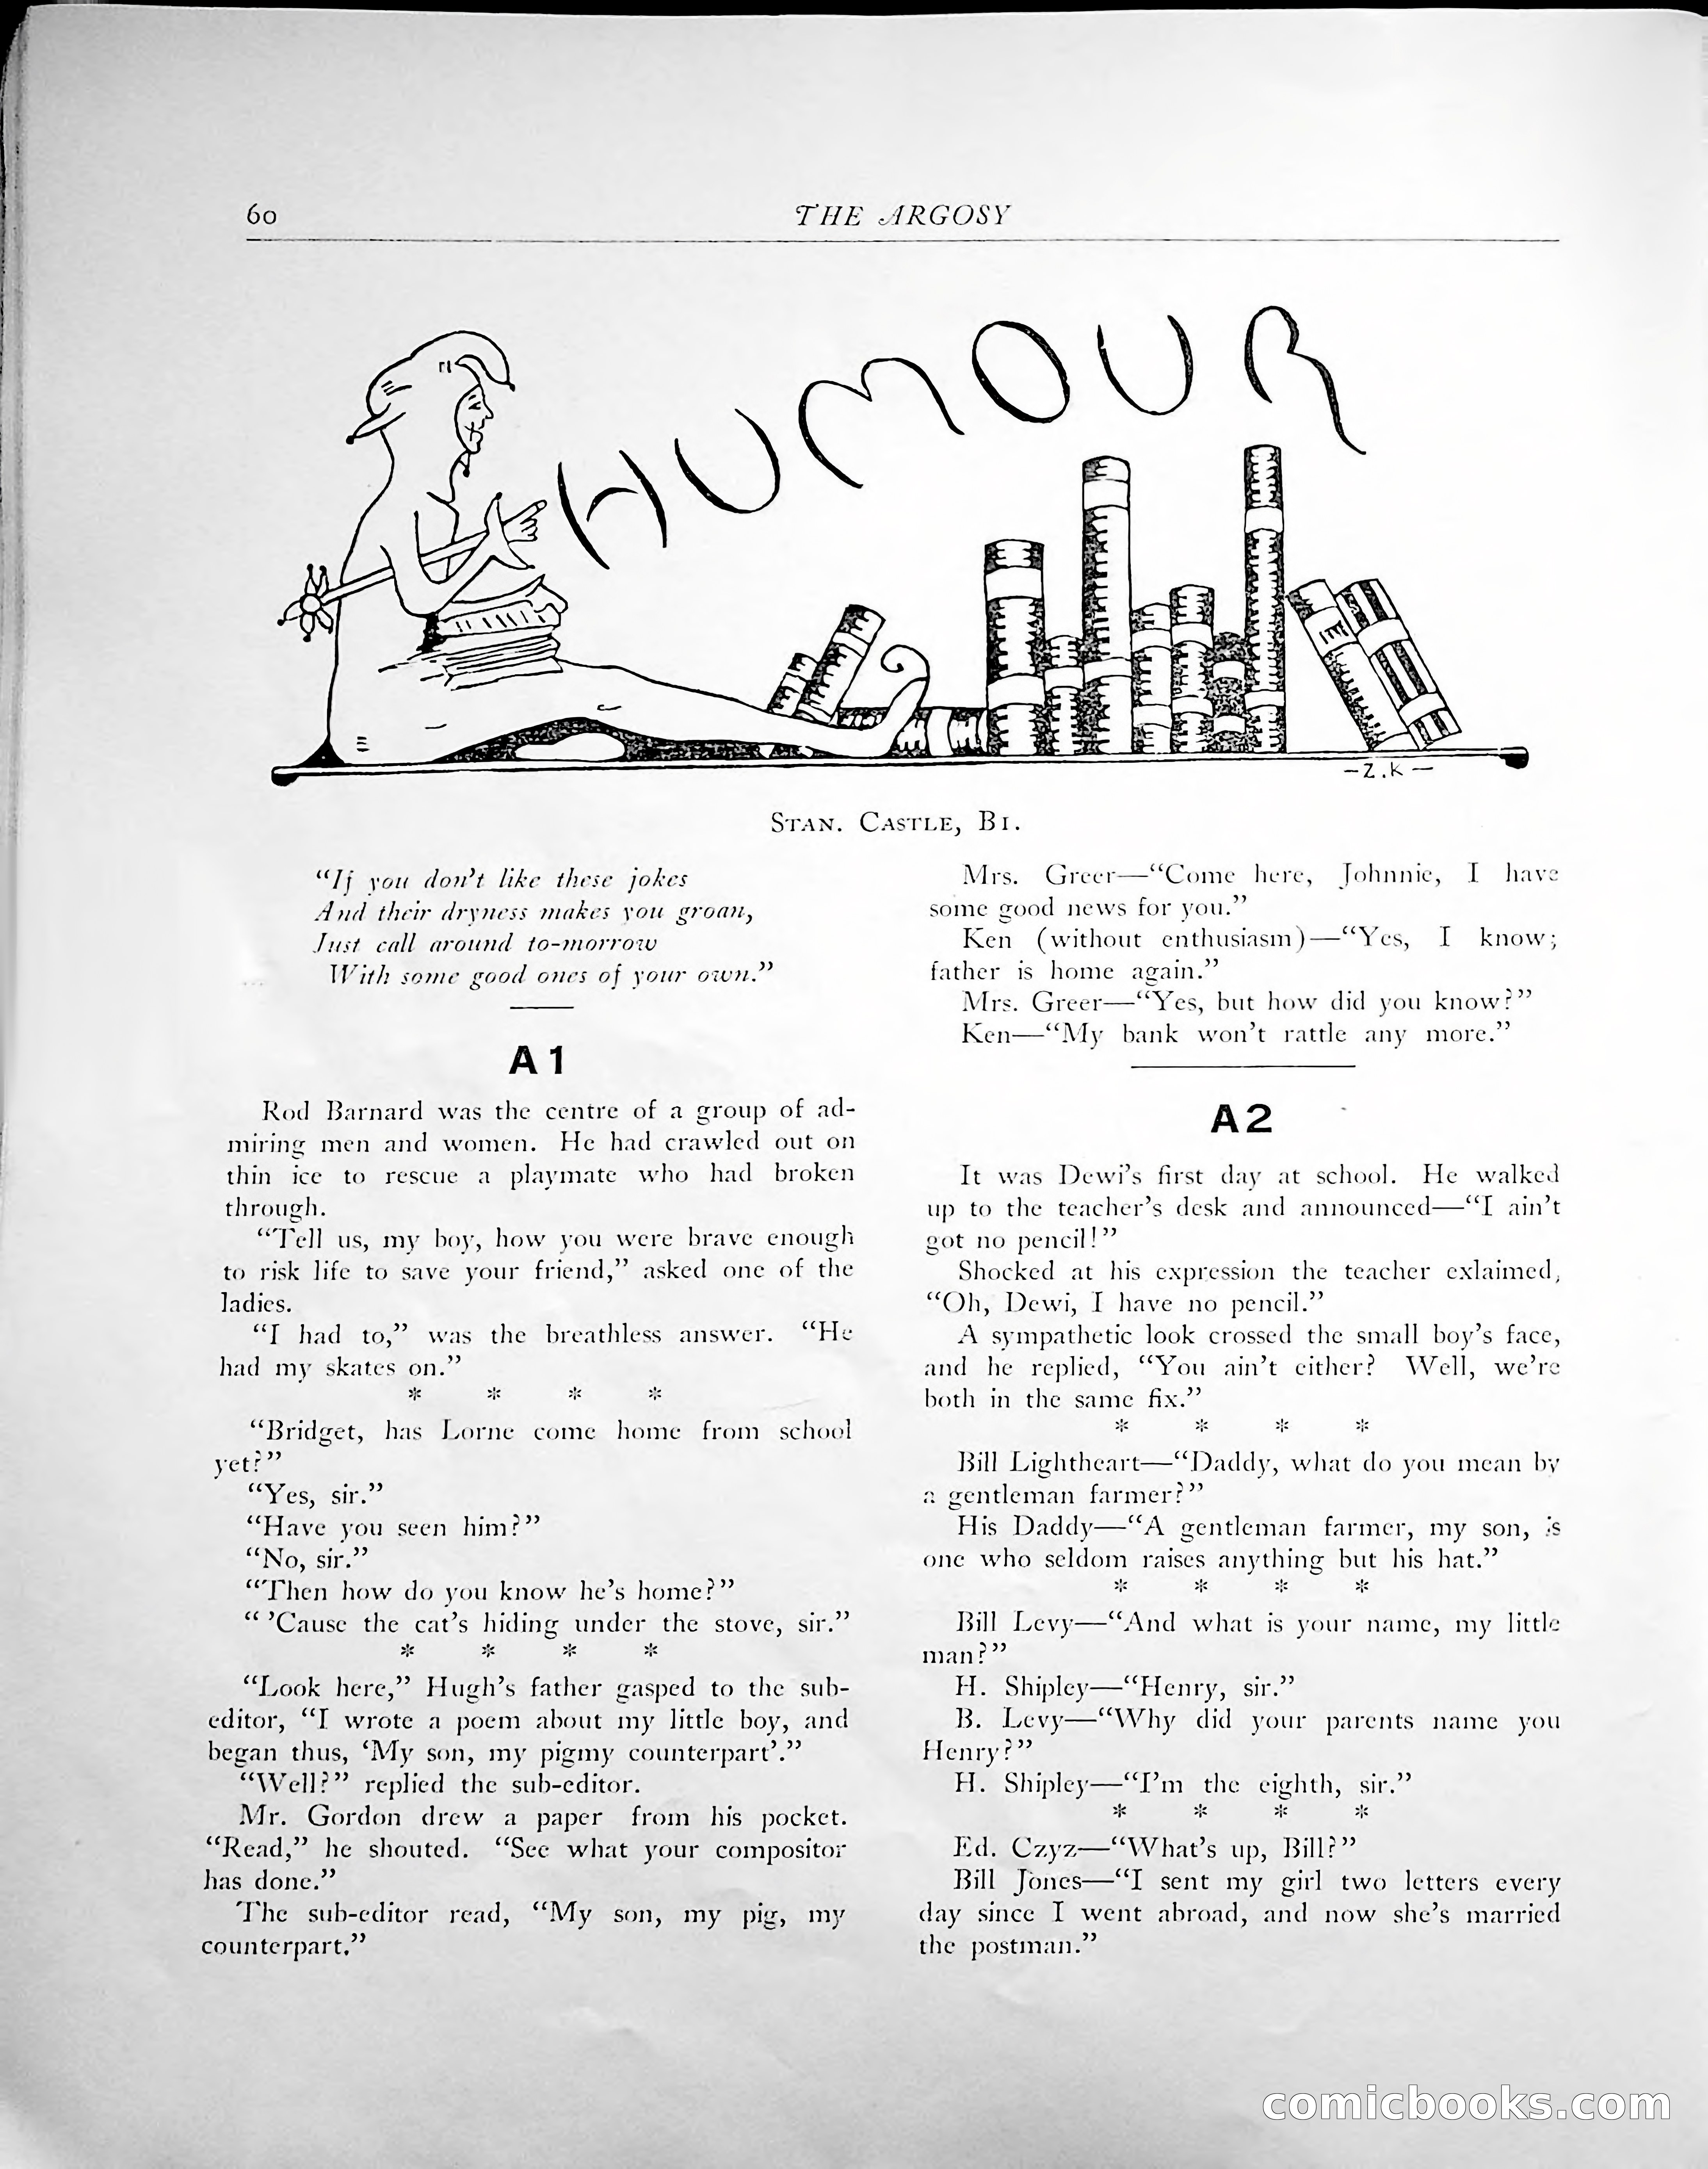 60
THE ARGOSY
HUMOUR
E
—Z.K—
STAN. CASTLE, B1.
“If you don’t like these jokes
And their dryness makes you groan,
Just call around to-morrow
With some good ones of your own.”
A 1
Rod Barnard was the centre of a group of ad-
miring men and women. He had crawled out on
thin ice to rescue a playmate who had broken
through.
“Tell us, my boy, how you were brave enough
to risk life to save your friend,” asked one of the
ladies.
“I had to,” was the breathless answer. “He
had my skates on.”
* * * *
“Bridget, has Lorne come home from school
yet?”
“Yes, sir.”
“Have you seen him?”
“No, sir.”
“Then how do you know he’s home?”
“ ’Cause the cat’s hiding under the stove, sir.”
* * * *
“Look here,” Hugh’s father gasped to the sub-
editor, “I wrote a poem about my little boy, and
began thus, ‘My son, my pigmy counterpart’.”
“Well?” replied the sub-editor.
Mr. Gordon drew a paper from his pocket.
“Read,” he shouted. “See what your compositor
has done.”
The sub-editor read, “My son, my pig, my
counterpart.”
Mrs. Greer—“Come here, Johnnie, I have
some good news for you.”
Ken (without enthusiasm)—“Yes, I know;
father is home again.”
Mrs. Greer—“Yes, but how did you know?”
Ken—“My bank won’t rattle any more.”
A 2
It was Dewi’s first day at school. He walked
up to the teacher’s desk and announced—“I ain’t
got no pencil!”
Shocked at his expression the teacher exlaimed,
“Oh, Dewi, I have no pencil.”
A sympathetic look crossed the small boy’s face,
and he replied, “You ain’t either? Well, we’re
both in the same fix.”
* * * *
Bill Lightheart—“Daddy, what do you mean by
a gentleman farmer?”
His Daddy—“A gentleman farmer, my son, is
one who seldom raises anything but his hat.”
* * * *
Bill Levy—“And what is your name, my little
man?”
H. Shipley—“Henry, sir.”
B. Levy—“Why did your parents name you
Henry?”
H. Shipley—“I’m the eighth, sir.”
* * * *
Ed. Czyz—“What’s up, Bill?”
Bill Jones—“I sent my girl two letters every
day since I went abroad, and now she’s married
the postman.”
comicbooks.com